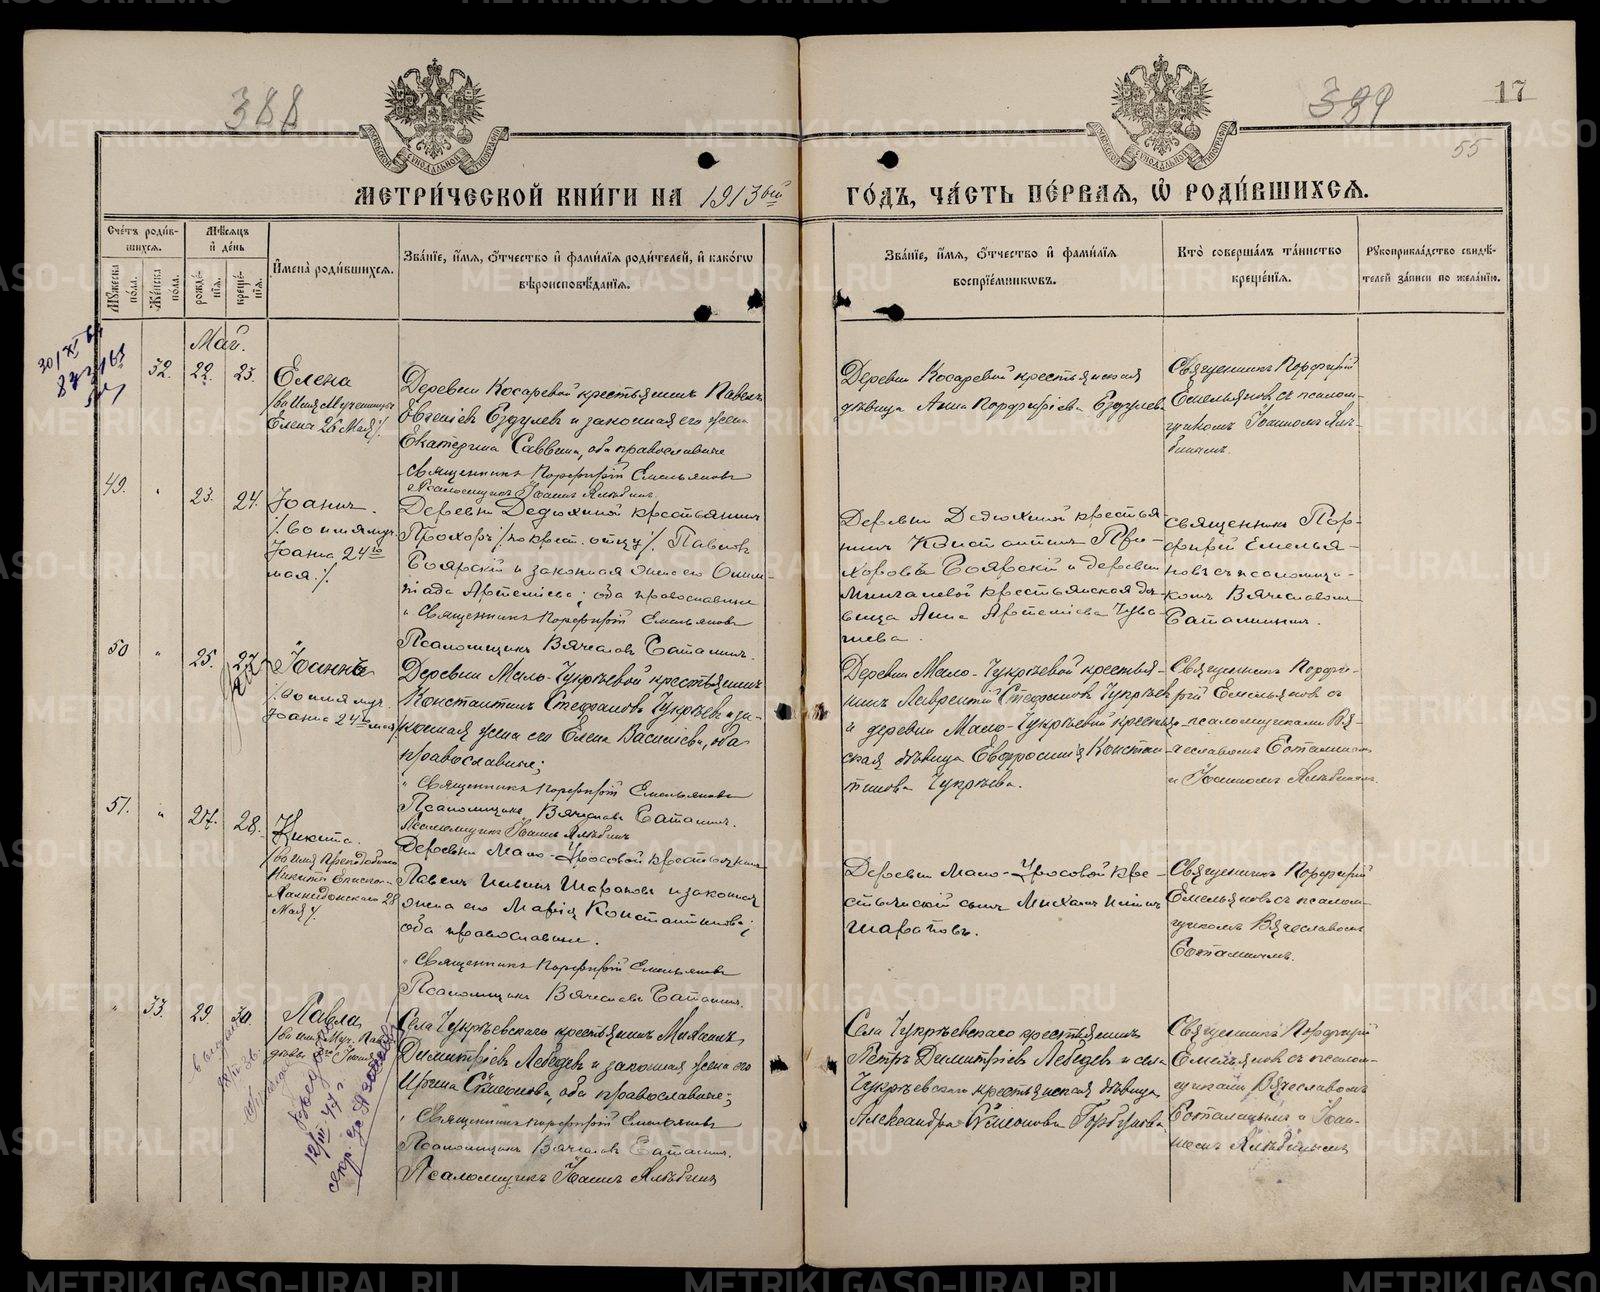 388
389
17
55
МЕТРИ́ЧЕСКОЙ КНИ́ГИ НА 1913ый
ГО́ДЪ, ЧА́СТЬ ПЕ́РВАѦ, Ѽ РОДИ́ВШИХСѦ.
Сче́тъ роди́вшихсѧ.
Мꙋ́жеска по́ла.
Же́нска по́ла.
Мѣ́сѧцъ и҆ де́нь
рожде́нїѧ.
креще́нїѧ.
И҆мена̀ роди́вшихсѧ.
Зва́нїе, и҆́мѧ, ѻ҆́тчество и҆ фами́лїѧ роди́телей, и҆ како́гѡ
вѣроисповѣ́данїѧ.
Зва́нїе, и҆́мѧ, ѻ҆́тчество и҆ фами́лїѧ
воспрїе́мникѡвъ.
Кто̀ соверша́лъ та́инство
креще́нїѧ.
Рꙋкоприкла́дство свидѣ́-
телей за́писи по жела́нїю.
Май.
52. 22. 23.
Елена
/во имя Мученицы
Елена 26 Мая/.
Деревни Косаревой крестьянинъ Павелъ
Евгеніевъ Ердулевъ и законная его жена
Екатерина Саввина, оба православные
Священникъ Порфирій Емельяновъ
Псаломщикъ Іоаннъ Алябинъ
Деревни Косаревой крестьянская
дѣвица Анна Порфиріева Ердулева
Священникъ Порфирій
Емельяновъ съ псалом-
щикомъ Іоанномъ Аля-
бинымъ.
49. " 23. 24.
Іоаннъ.
/. во имя муч.
Іоанна 24го
мая./.
Деревни Дедюхиной крестьянинъ
Прохоръ /по крест. отцу/. Павловъ
Боярскій и законная жена его Олим-
піада Артеміева; оба православные
" Священникъ Порфирій Емельяновъ
Псаломщикъ Вячеславъ Баталинъ.
Деревни Дедюхиной крестья-
нинъ Константинъ Про-
хоровъ Боярскій и деревни
крестьянская дѣ-
вица Анна Артеміева
Священникъ Пор-
фирій Емелья-
новъ съ псаломщи-
комъ Вячеславомъ
Баталинымъ.
50 " 25. 27.
Іоаннъ
/. во имя муч.
Іоанна 24го мая/
Деревни Мало-Чукрѣевой крестьянинъ
Константинъ Стефановъ Чукрѣевъ и за-
конная жена его Елена Василіева, оба
православные;
" Священникъ Порфирій Емельяновъ
Псаломщикъ Вячеславъ Баталинъ.
Псаломщикъ Іоаннъ Алябинъ
Деревни Мало-Чукрѣевой крестья-
нинъ Лаврентій Стефановъ Чукрѣевъ
и деревни Мало-Чукрѣевой крестьян-
ская дѣвица Евфросинія Констан-
тинова Чукрѣева.
Священникъ Порфи-
рій Емельяновъ съ
псаломщиками Вя-
чеславомъ Баталинымъ
и Іоанномъ Алябинымъ.
51. " 27. 28.
Никита.
/во имя Преподобнаго
Никиты Епископа
Халкидонскаго 28
Мая/.
Деревни Мало-Уросовой крестьянинъ
Павелъ Ильинъ Шараповъ и законная
жена его Марія Константинова;
оба православные.
" Священникъ Порфирій Емельяновъ
Псаломщикъ Вячеславъ Баталинъ.
Деревни Мало-Уросовой кре-
стьянскій сынъ Михаилъ Ильинъ
Шараповъ.
Священникъ Порфирій
Емельяновъ съ псалом-
щикомъ Вячеславомъ
Баталинымъ.
" 53. 29. 30.
Павла
Села Чукрѣевскаго крестьянинъ Михаилъ
Димитріевъ Лебедевъ и законная жена его
Ирина Симеонова, оба православные;
" Священникъ Порфирій Емельяновъ
Псаломщикъ Вячеславъ Баталинъ.
Псаломщикъ Іоаннъ Алябинъ
Села Чукрѣевскаго крестьянинъ
Петръ Димитріевъ Лебедевъ и села
Чукрѣевскаго крестьянская дѣвица
Александра Симеонова Горбунова
Священникъ Порфирій
Емельяновъ съ псалом-
щиками Вячеславомъ
Баталинымъ и Іоан-
номъ Алябинымъ
METRIKI.GASO-URAL.RU